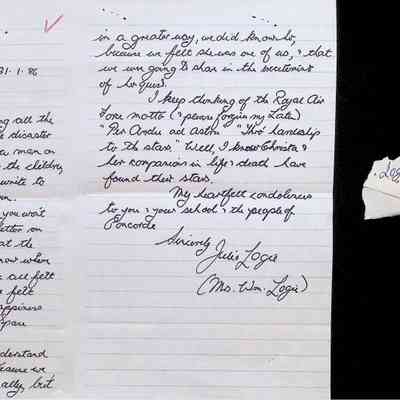 31.1.86
ng all the
disaster
a man on
the children,
write to
you won't
letter on
at the
now when
all felt
felt
appiness
Space
derstand
we
ally, but
in a greater way, we did know her,
because we felt she was one of us, & that
we were going to share in the excitement
of her quest.
I keep thinking of the Royal Air
Force motto (& please forgive my Latin)
"Per Ardu ad Astra" "Thro' hardship
to the stars." Well, I know Christa &
her companions in life & death have
found their stars.
My heartfelt condolences
to you & your school & the people of
Concorde
Sincerely
Julie Logie
(Mrs. Wm. Logie)